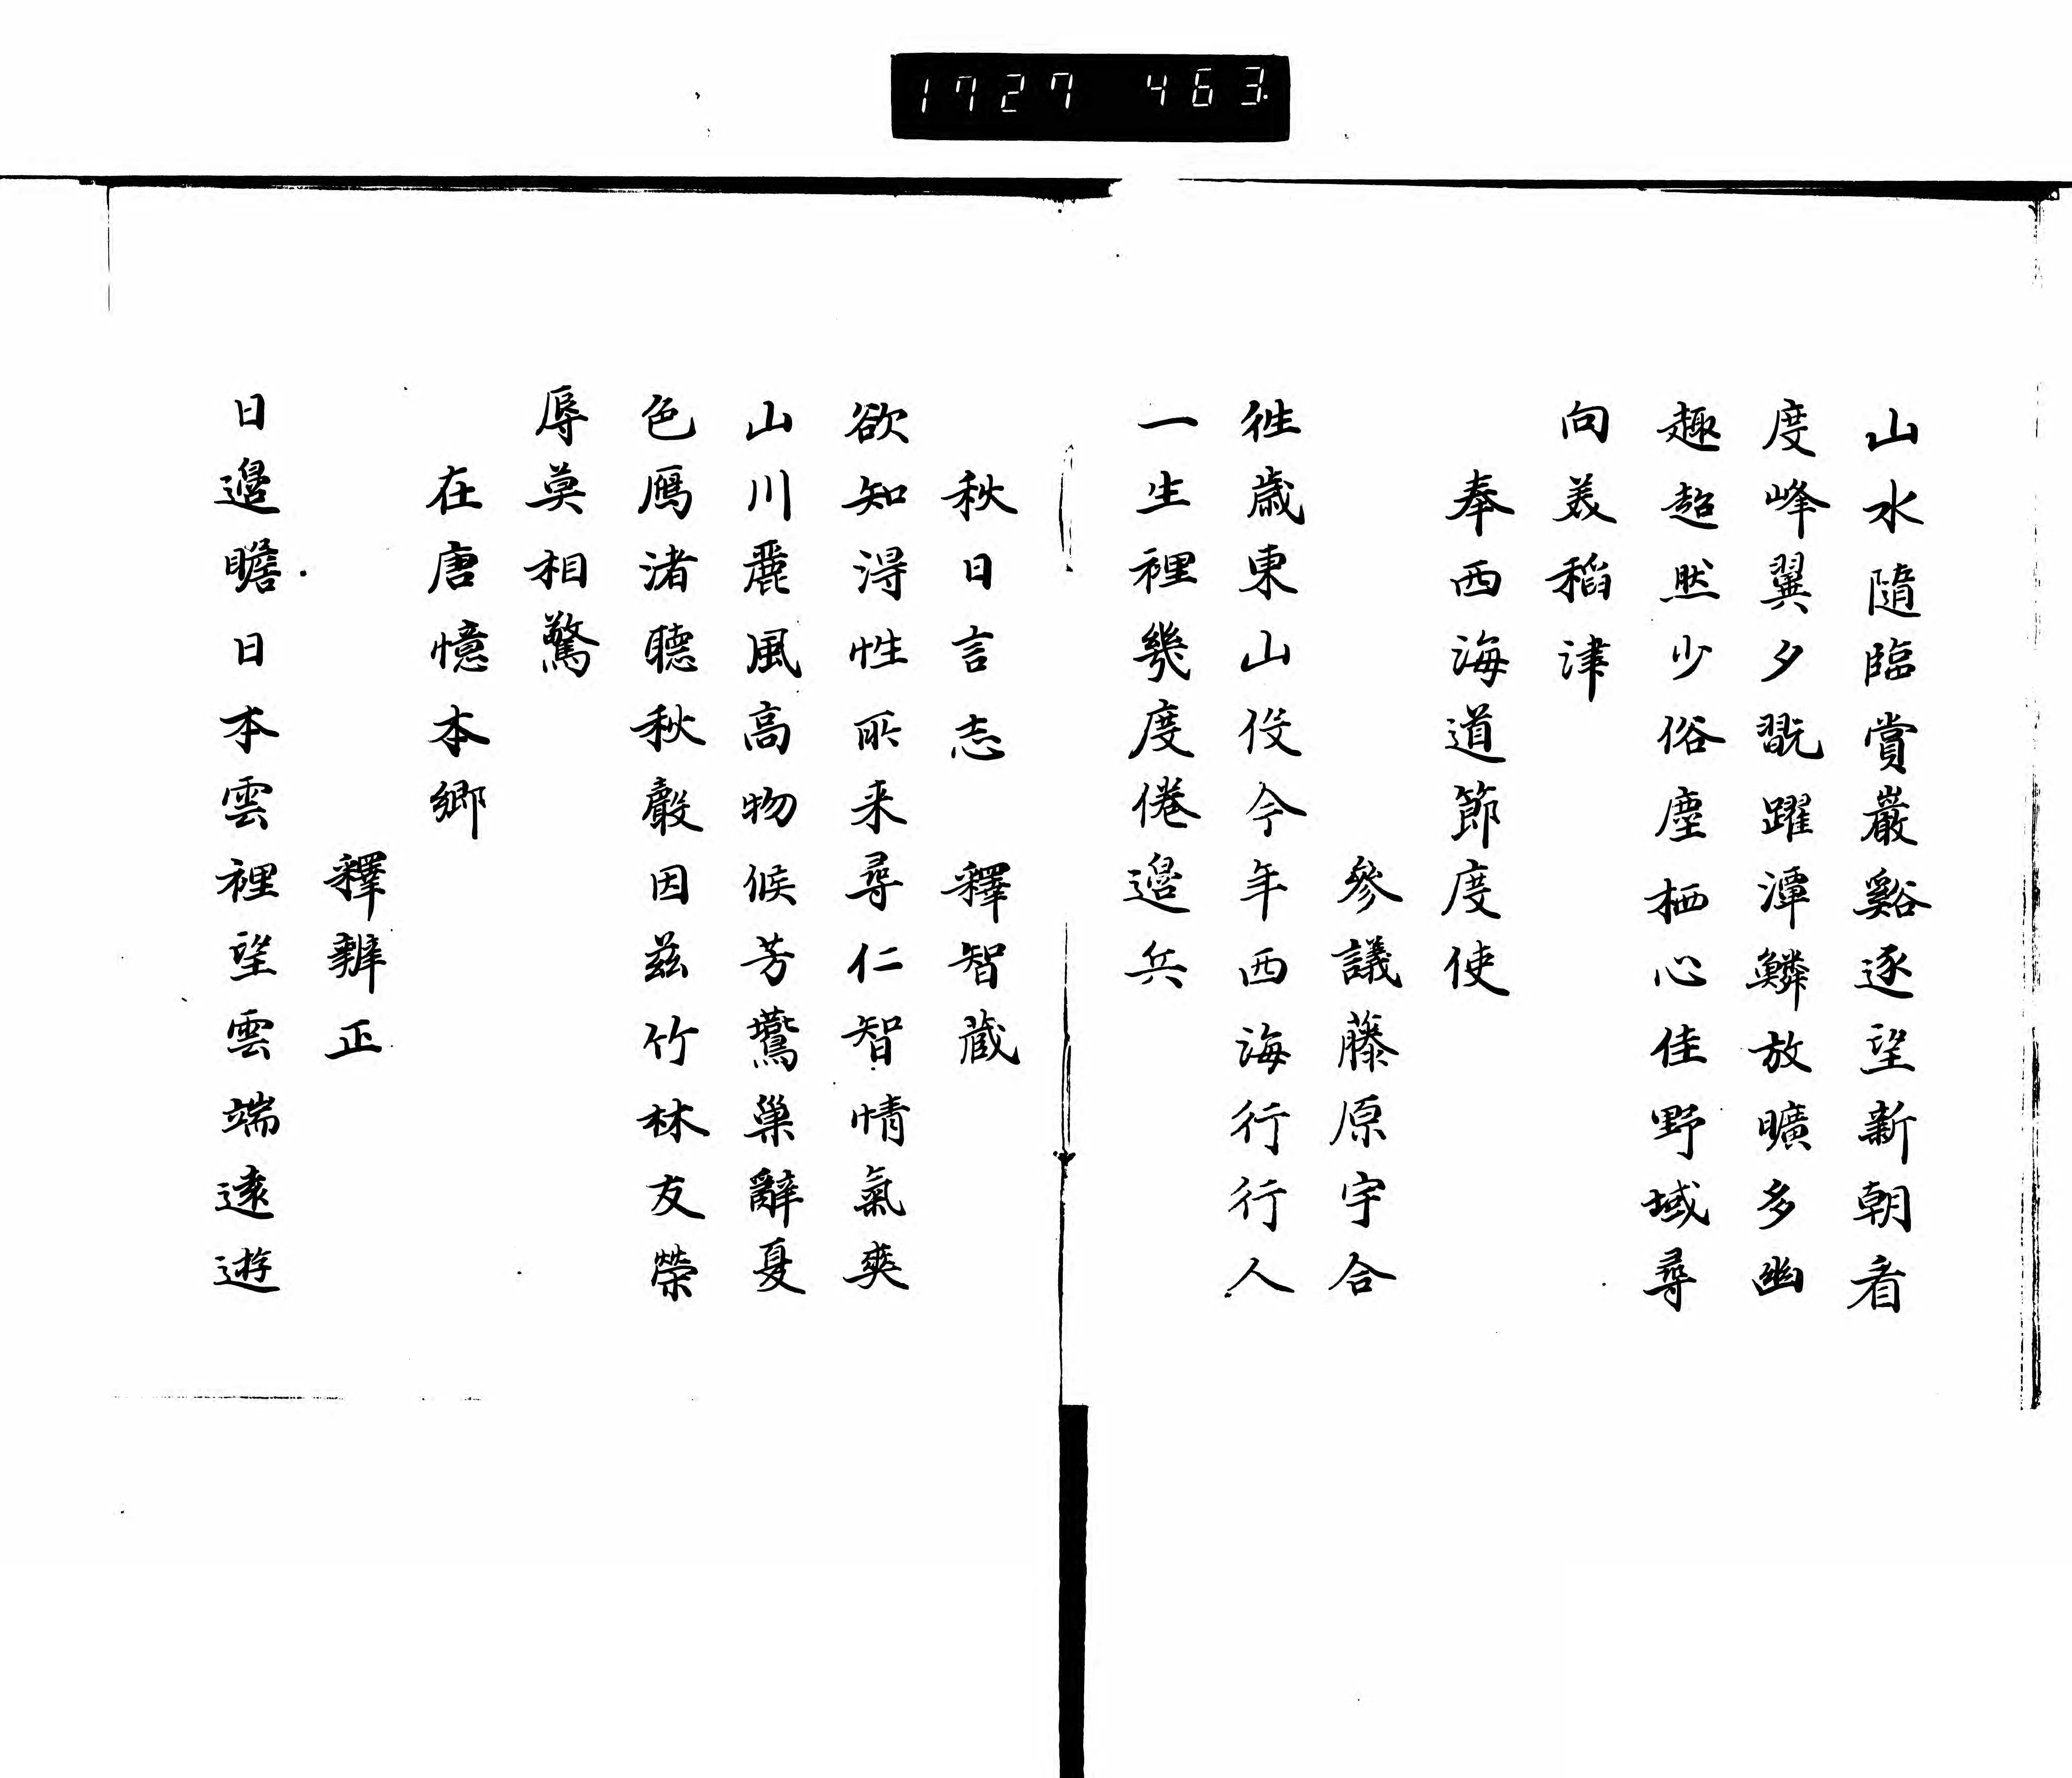 1727 463
山水隨臨賞巖谿逐望新朝看
度峰翼夕翫躍潭鱗放曠多幽
趣超然少俗塵栖心佳野域尋
向美稻津
奉西海道節度使
參議藤原宇合
徃歳東山伇今年西海行行人
一生裡幾度倦邊兵
秋日言志　釋智蔵
欲知得性所来尋仁智情氣爽
山川麗風高物候芳鷰巢辭夏
色鴈渚聴秋聲因茲竹林友榮
辱莫相驚
在唐憶本郷
釋辨正
日邊瞻日本雲裡望雲端遠遊